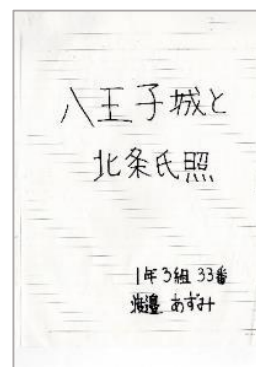 八王子城と
北条氏照
1年3組 33番
渡邉 あずみ